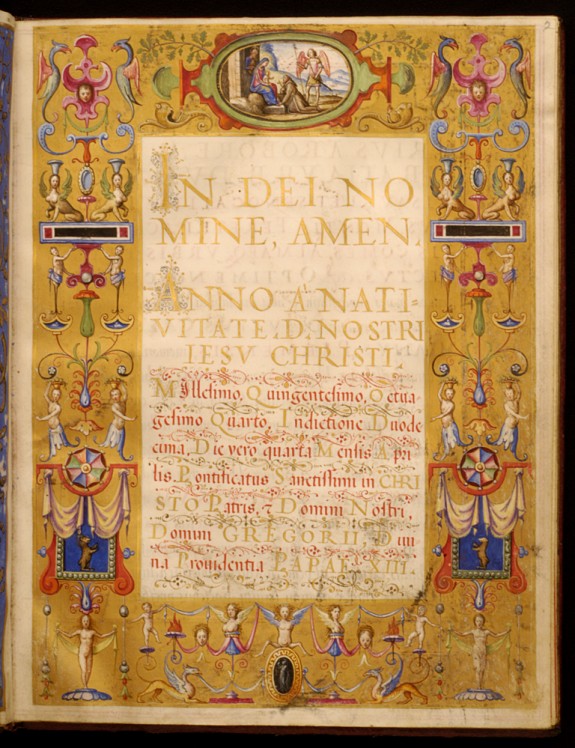 IN DEI NO
MINE, AMEN.
ANNO A NATI=
VITATE D. NOSTRI
IESV CHRISTI,
Millesimo, Quingentesimo, Octua
gesimo Quarto, Indictione Duode
cima, Die vero quarta Mensis Apri
lis. Pontificatus Sanctissimi in CHRI
STO Patris, & Domini Nostri.
Domini GREGORII, Diui
na Prouidentia PAPAE XIII.